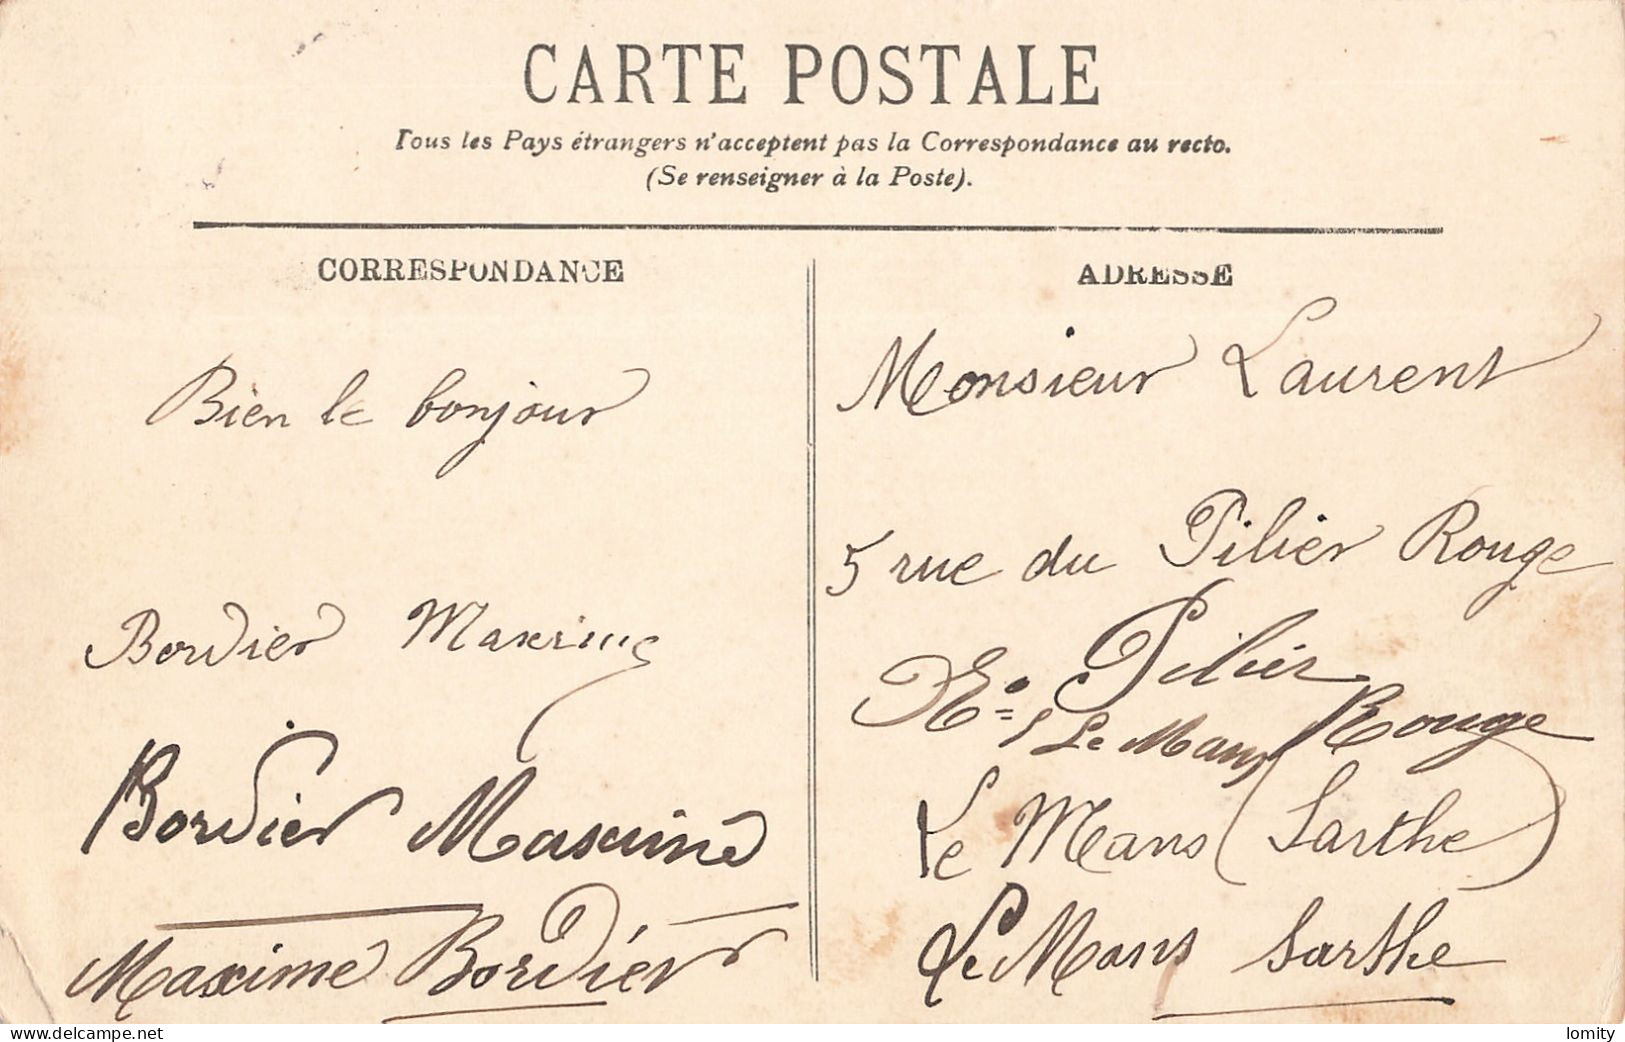 CARTE POSTALE
Tous les Pays étrangers n'acceptent pas la Correspondance au recto.
(Se renseigner à la Poste).
CORRESPONDANCE
Bien le bonjour
Bordier Maxime
Bordier Maxime
Maxime Bordier
ADRESSE
Monsieur Laurent
5 rue du Pilier Rouge
Pilier Rouge
Le Mans
Le Mans (Sarthe)
Le Mans Sarthe
www.delcampe.net
lomity